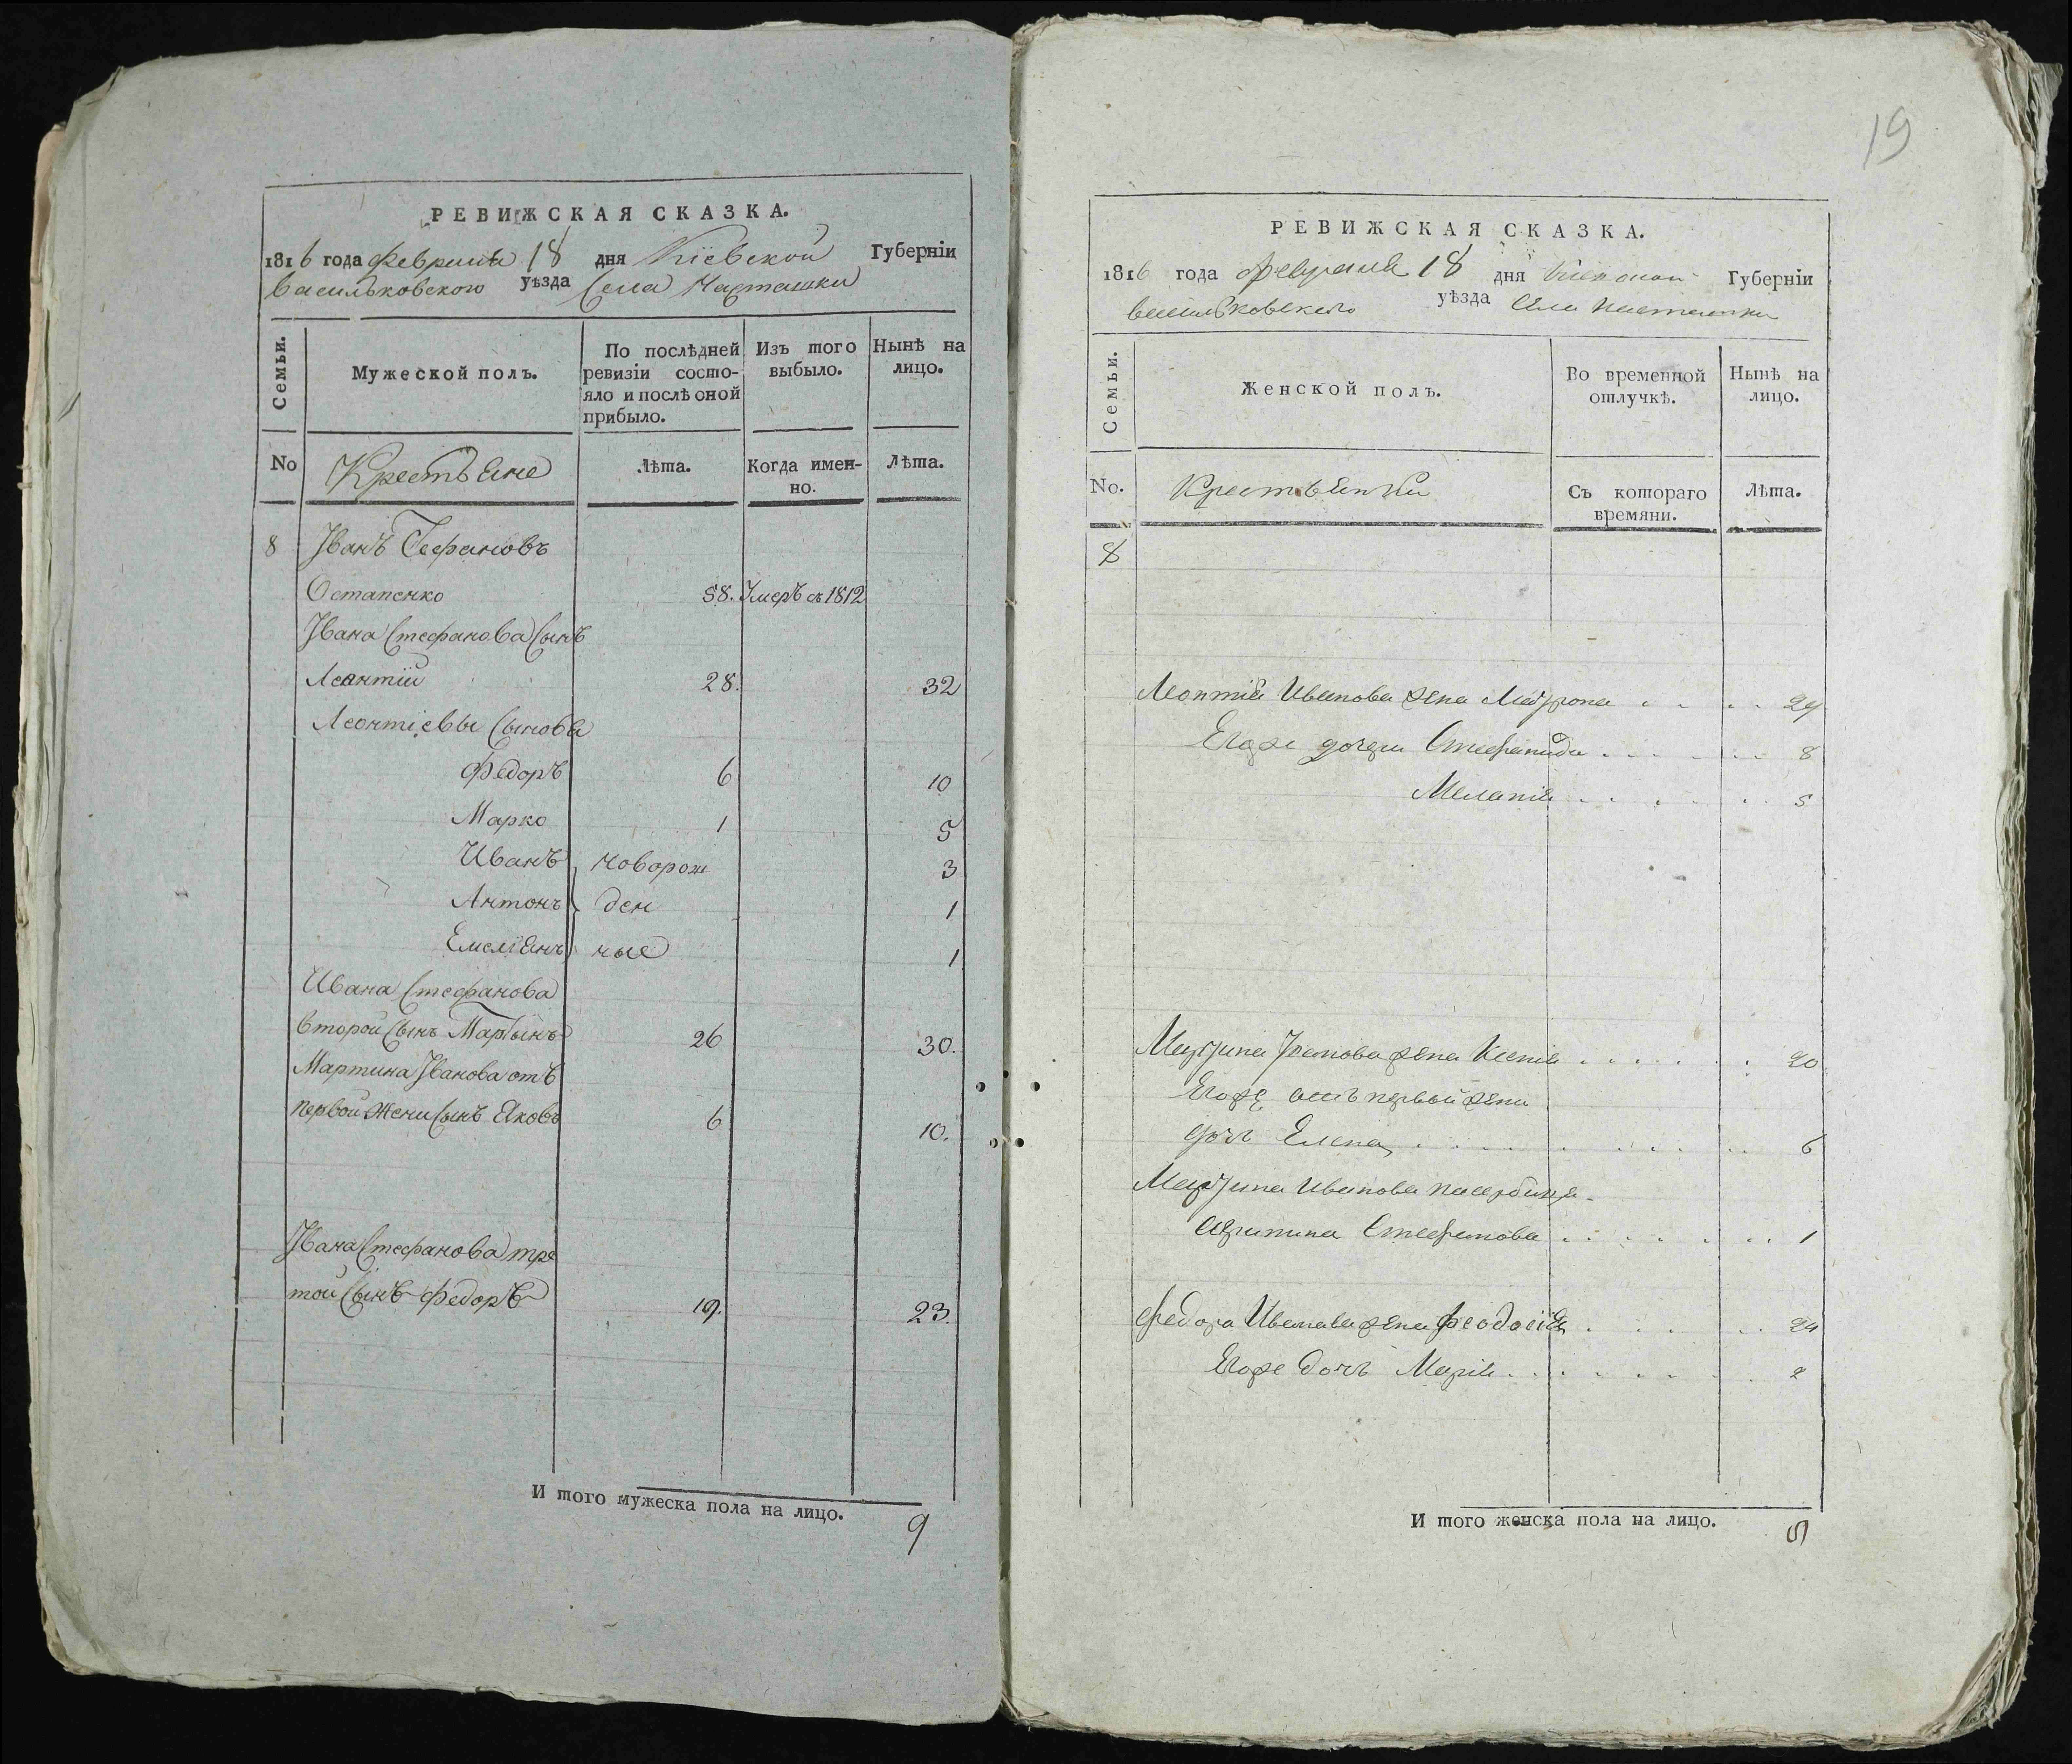 РЕВИЖСКАЯ СКАЗКА.
1816 года февраля 18 дня Кіевской Губерніи
Васильковского уѣзда Села Насташки
Семьи.
Мужеской полъ.
По послѣдней ревизіи состо-
яло и послѣ оной
прибыло.
Изъ того
выбыло.
Нынѣ на
лицо.
No
Крестьяне
Лѣта.
Когда имен-
но.
Лѣта.
8 Іванъ Стефановъ
Остапенко 58. Умеръ въ 1812
Івана Стефанова Сынъ
Леонтій 28. 32
Леонтіевы Сыновья
Федоръ 6 10
Марко 1 5
Иванъ новорож 3
Антонъ ден 1
Емеліянъ ные 1
Ивана Стефанова
второй Сынъ Мартынъ 26 30.
Мартина Іванова отъ
первой жени Сынъ Яковъ 6 10.
Івана Стефанова тре
той Сынъ Федоръ 19. 23.
И того мужеска пола на лицо. 9
19
РЕВИЖСКАЯ СКАЗКА.
1816 года февраля 18 дня Кіевской Губерніи
васильковского уѣзда Села Насташки
Семьи.
Женской полъ.
Во временной
отлучкѣ.
Нынѣ на
лицо.
No.
Крестьянки
Съ котораго
времяни.
Лѣта.
8
Леонтія Иванова жена Матрона 29
Егоже дочери Стефанида 8
Меланія 5
Мартина Іванова жена Ксенія 20
Егоже отъ первой жени
дочъ Елена 6
Мартина Иванова пасербица
Стефанова 1
Федора Иванова жена Феодосія 24
Егоже дочъ Марія 2
И того женска пола на лицо.